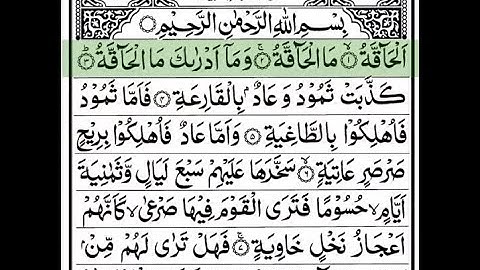 بِسْمِ اللّٰهِ الرَّحْمٰنِ الرَّحِيْمِ
اَلْحَآقَّةُ ۙ﴿۱﴾ مَا الْحَآقَّةُ ۚ﴿۲﴾ وَمَاۤ اَدْرٰىكَ مَا الْحَآقَّةُ ؕ﴿۳﴾
كَذَّبَتْ ثَمُوْدُ وَ عَادٌۢ بِالْقَارِعَةِ ﴿۴﴾ فَاَمَّا ثَمُوْدُ
فَاُهْلِكُوْا بِالطَّاغِيَةِ ﴿۵﴾ وَاَمَّا عَادٌ فَاُهْلِكُوْا بِرِيْحٍ
صَرْصَرٍ عَاتِيَةٍ ۙ﴿۶﴾ سَخَّرَهَا عَلَيْهِمْ سَبْعَ لَيَالٍ وَّثَمٰنِيَةَ
اَيَّامٍ ۙ حُسُوْمًا فَتَرَى الْقَوْمَ فِيْهَا صَرْعٰى ۙ كَاَنَّهُمْ
اَعْجَازُ نَخْلٍ خَاوِيَةٍ ۚ﴿۷﴾ فَهَلْ تَرٰى لَهُمْ مِّنْۢ